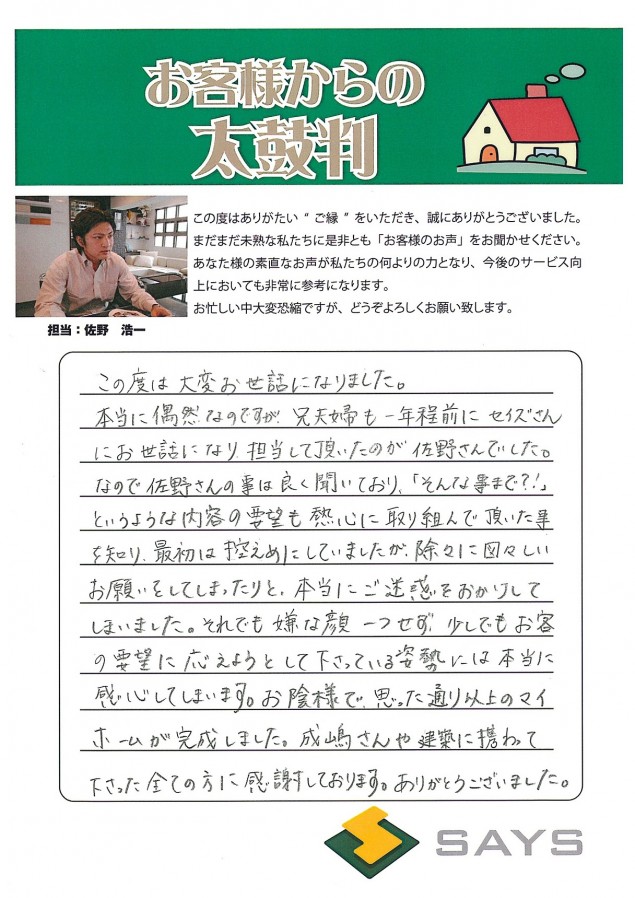 お客様からの
太鼓判
この度はありがたい“ご縁”をいただき、誠にありがとうございました。
まだまだ未熟な私たちに是非とも「お客様のお声」をお聞かせください。
あなた様の素直なお声が私たちの何よりの力となり、今後のサービス向
上においても非常に参考になります。
お忙しい中大変恐縮ですが、どうぞよろしくお願い致します。
担当：佐野　浩一
この度は大変お世話になりました。
本当に偶然なのですが、兄夫婦も一年程前にセイズさん
にお世話になり、担当して頂いたのが佐野さんでした。
なので佐野さんの事は良く聞いており、「そんな事まで?!」
というような内容の要望も熱心に取り組んで頂いた事
を知り、最初は控えめにしていましたが、除々に図々しい
お願いをしてしまったりと、本当にご迷惑をおかけして
しまいました。それでも嫌な顔一つせず、少しでもお客
の要望に応えようとして下さっている姿勢には本当に
感心してしまいます。お陰様で、思った通り以上のマイ
ホームが完成しました。成嶋さんや建築に携わって
下さった全ての方に感謝しております。ありがとうございました。
SAYS